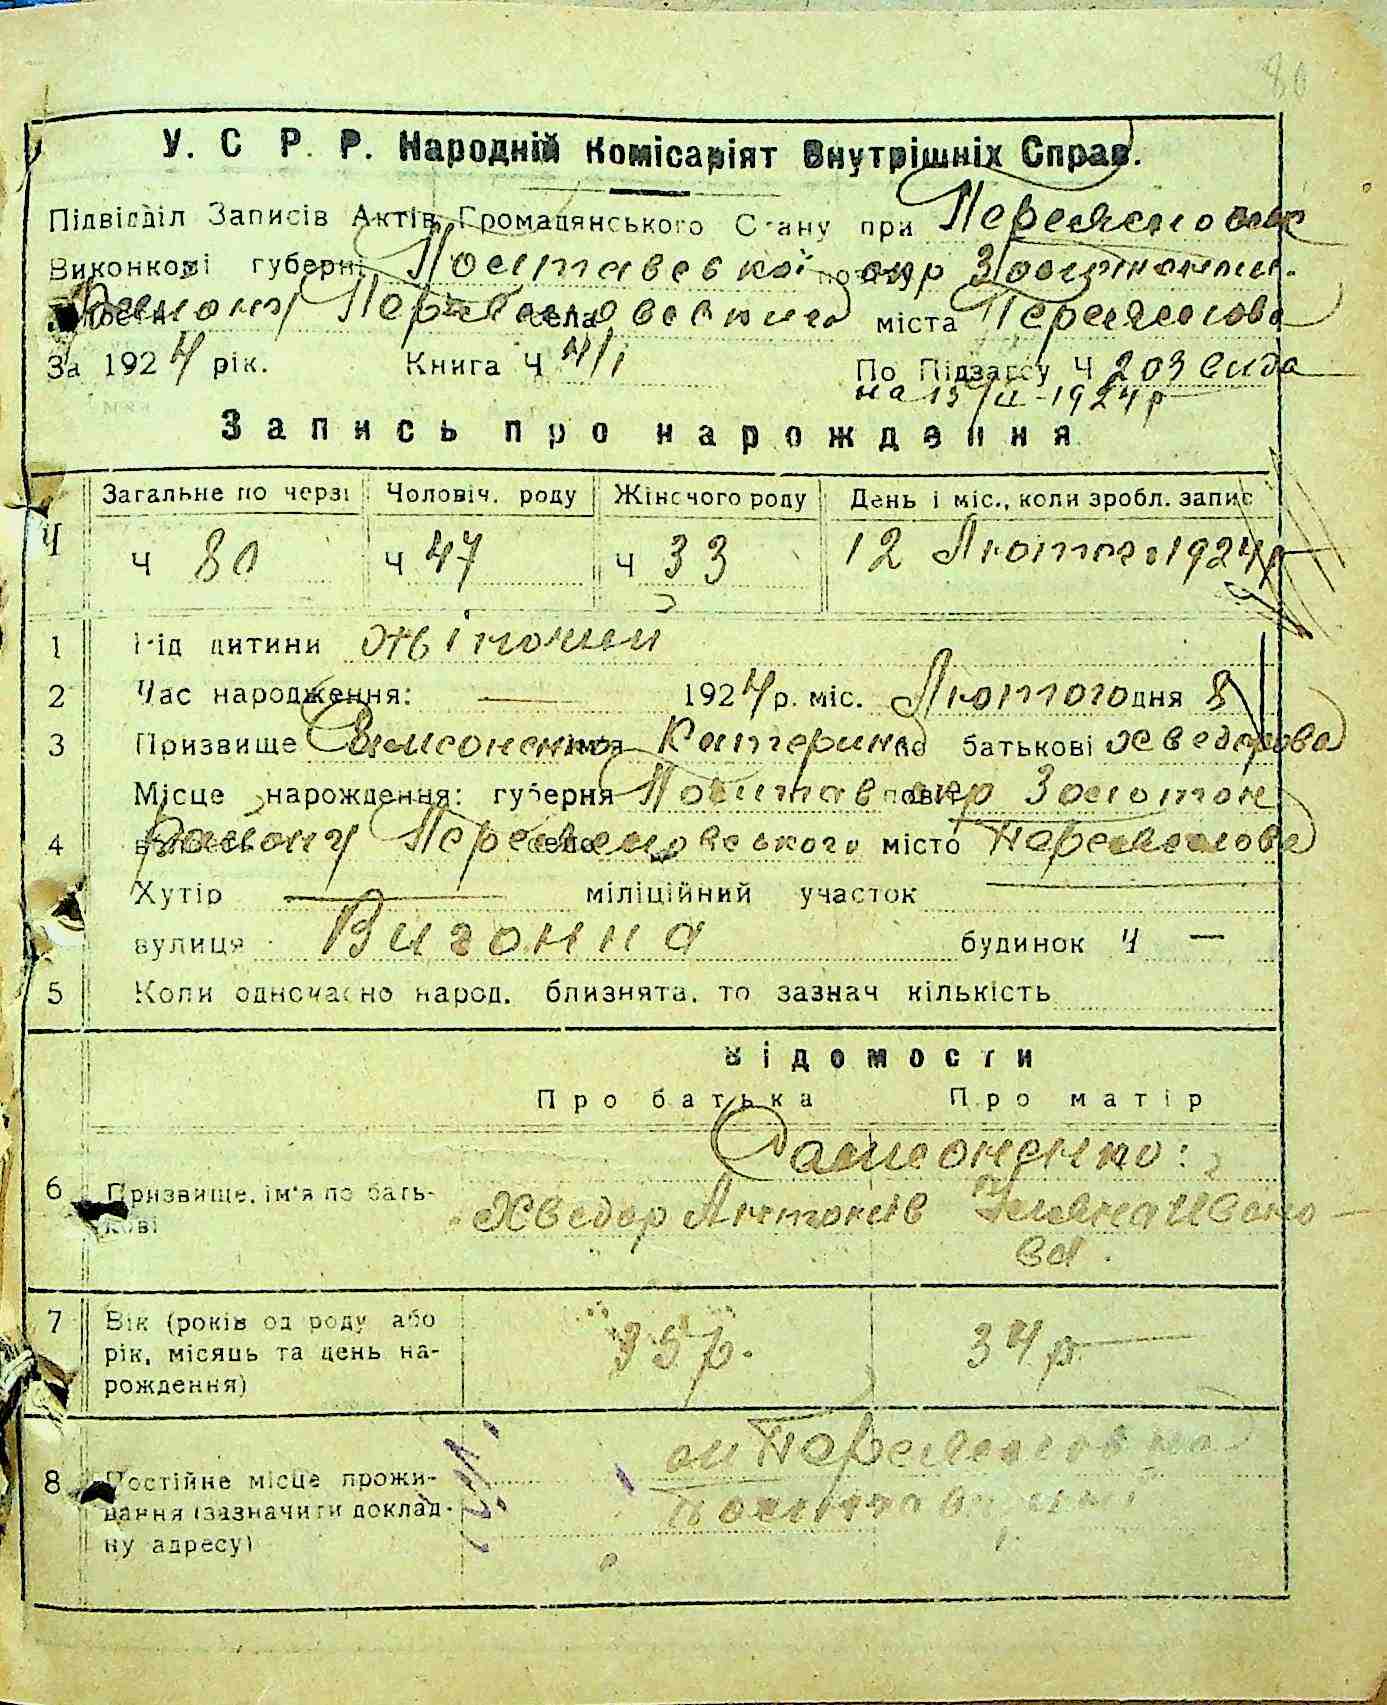 80
У. С Р. Р. Народній Комісаріят Внутрішніх Справ.
Підвідділ Записів Актів Громадянського Стану при Переяслов
Виконкомі губерні Полтавської окр Золотонош.
Району Переяславського села міста Переяслова
За 1924 рік. Книга Ч 4/1 По Підзагсу Ч 203 вида
на 15/II-1924 р
Запись про нарождення
Ч Загальне по черзі Чоловіч. роду Жіночого роду День і міс., коли зробл. запис
Ч 80 Ч 47 Ч 33 12 Лютого 1924 р
1 Рід дитини жіночий
2 Час народження: — 1924 р. міс. Лютого дня 8
3 Призвище Самсоненко імя Катерина по батькові Хведорова
Місце нарождення: губерня Полтав повіт окр Золотон
4 Району Переяславського село місто Переяслова
Хутір — міліційний участок —
вулиця Вигонна будинок Ч —
5 Коли одночасно народ. близнята, то зазнач кількість
Відомости
Про батька Про матір
Самоненко:
6 Призвище, ім'я по бать-
кові
Хведор Антонів Уляна Івано
ва.
7 Вік (років од роду або
рік, місяць та день на-
рождення)
35 р. 34 р
8 Постійне місце прожи-
вання (зазначити доклад-
ну адресу)
м Переяслов на
Полтавщині